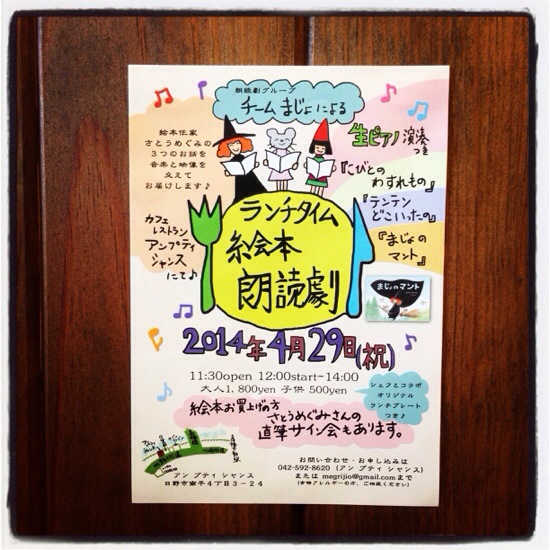 朗読劇グループ
チーム まじょによる
絵本作家
さとうめぐみの
3つのお話を
音楽と映像を
交えて
お届けします♪
生ピアノ演奏
つき
『こびとの
わすれもの』
『テンテン
どこいったの』
『まじょの
マント』
カフェ
レストラン
アンプティ
シャンス
にて♪
ランチタイム
絵本
朗読劇
まじょのマント
2014年4月29日(祝)
11:30open 12:00start~14:00
大人1,800yen 子供 500yen
シェフとコラボ
オリジナル
ランチプレート
つき♪
絵本お買上げの方
さとうめぐみさんの
直筆サイン会もあります。
アン プティ シャンス
日野市南平4丁目3-24
お問い合わせ・お申し込みは
042-592-8620 (アン プティ シャンス)
または megrijio@gmail.comまで
(食物アレルギーの方、ご相談ください)